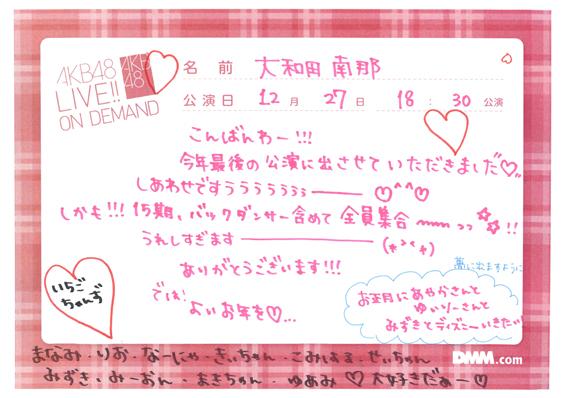 AKB48
LIVE!!
ON DEMAND
AKB
48
名前 大和田 南那
公演日 12月 27日 18:30公演
こんばんわー!!!
今年最後の公演に出させていただきました♡
しあわせですぅぅぅぅぅぅぅ——♡^^♡
しかも!!! 15期、バックダンサー含めて 全員集合〜〜っっ☆☆!!
うれしすぎます————
ありがとうございます!!!
では!
よいお年を♡...
いちご
ちゃんず
夢に出ますように
お正月にあやかさんと
ゆいりーさんと
みずきとディズニーいきたいッ
まなみ・りお・なーにゃ・きぃちゃん・こみはる・せいちゃん
みずき・みーおん・まきちゃん・ゆあみ ♡ 大好きだぁー♡
DMM.com